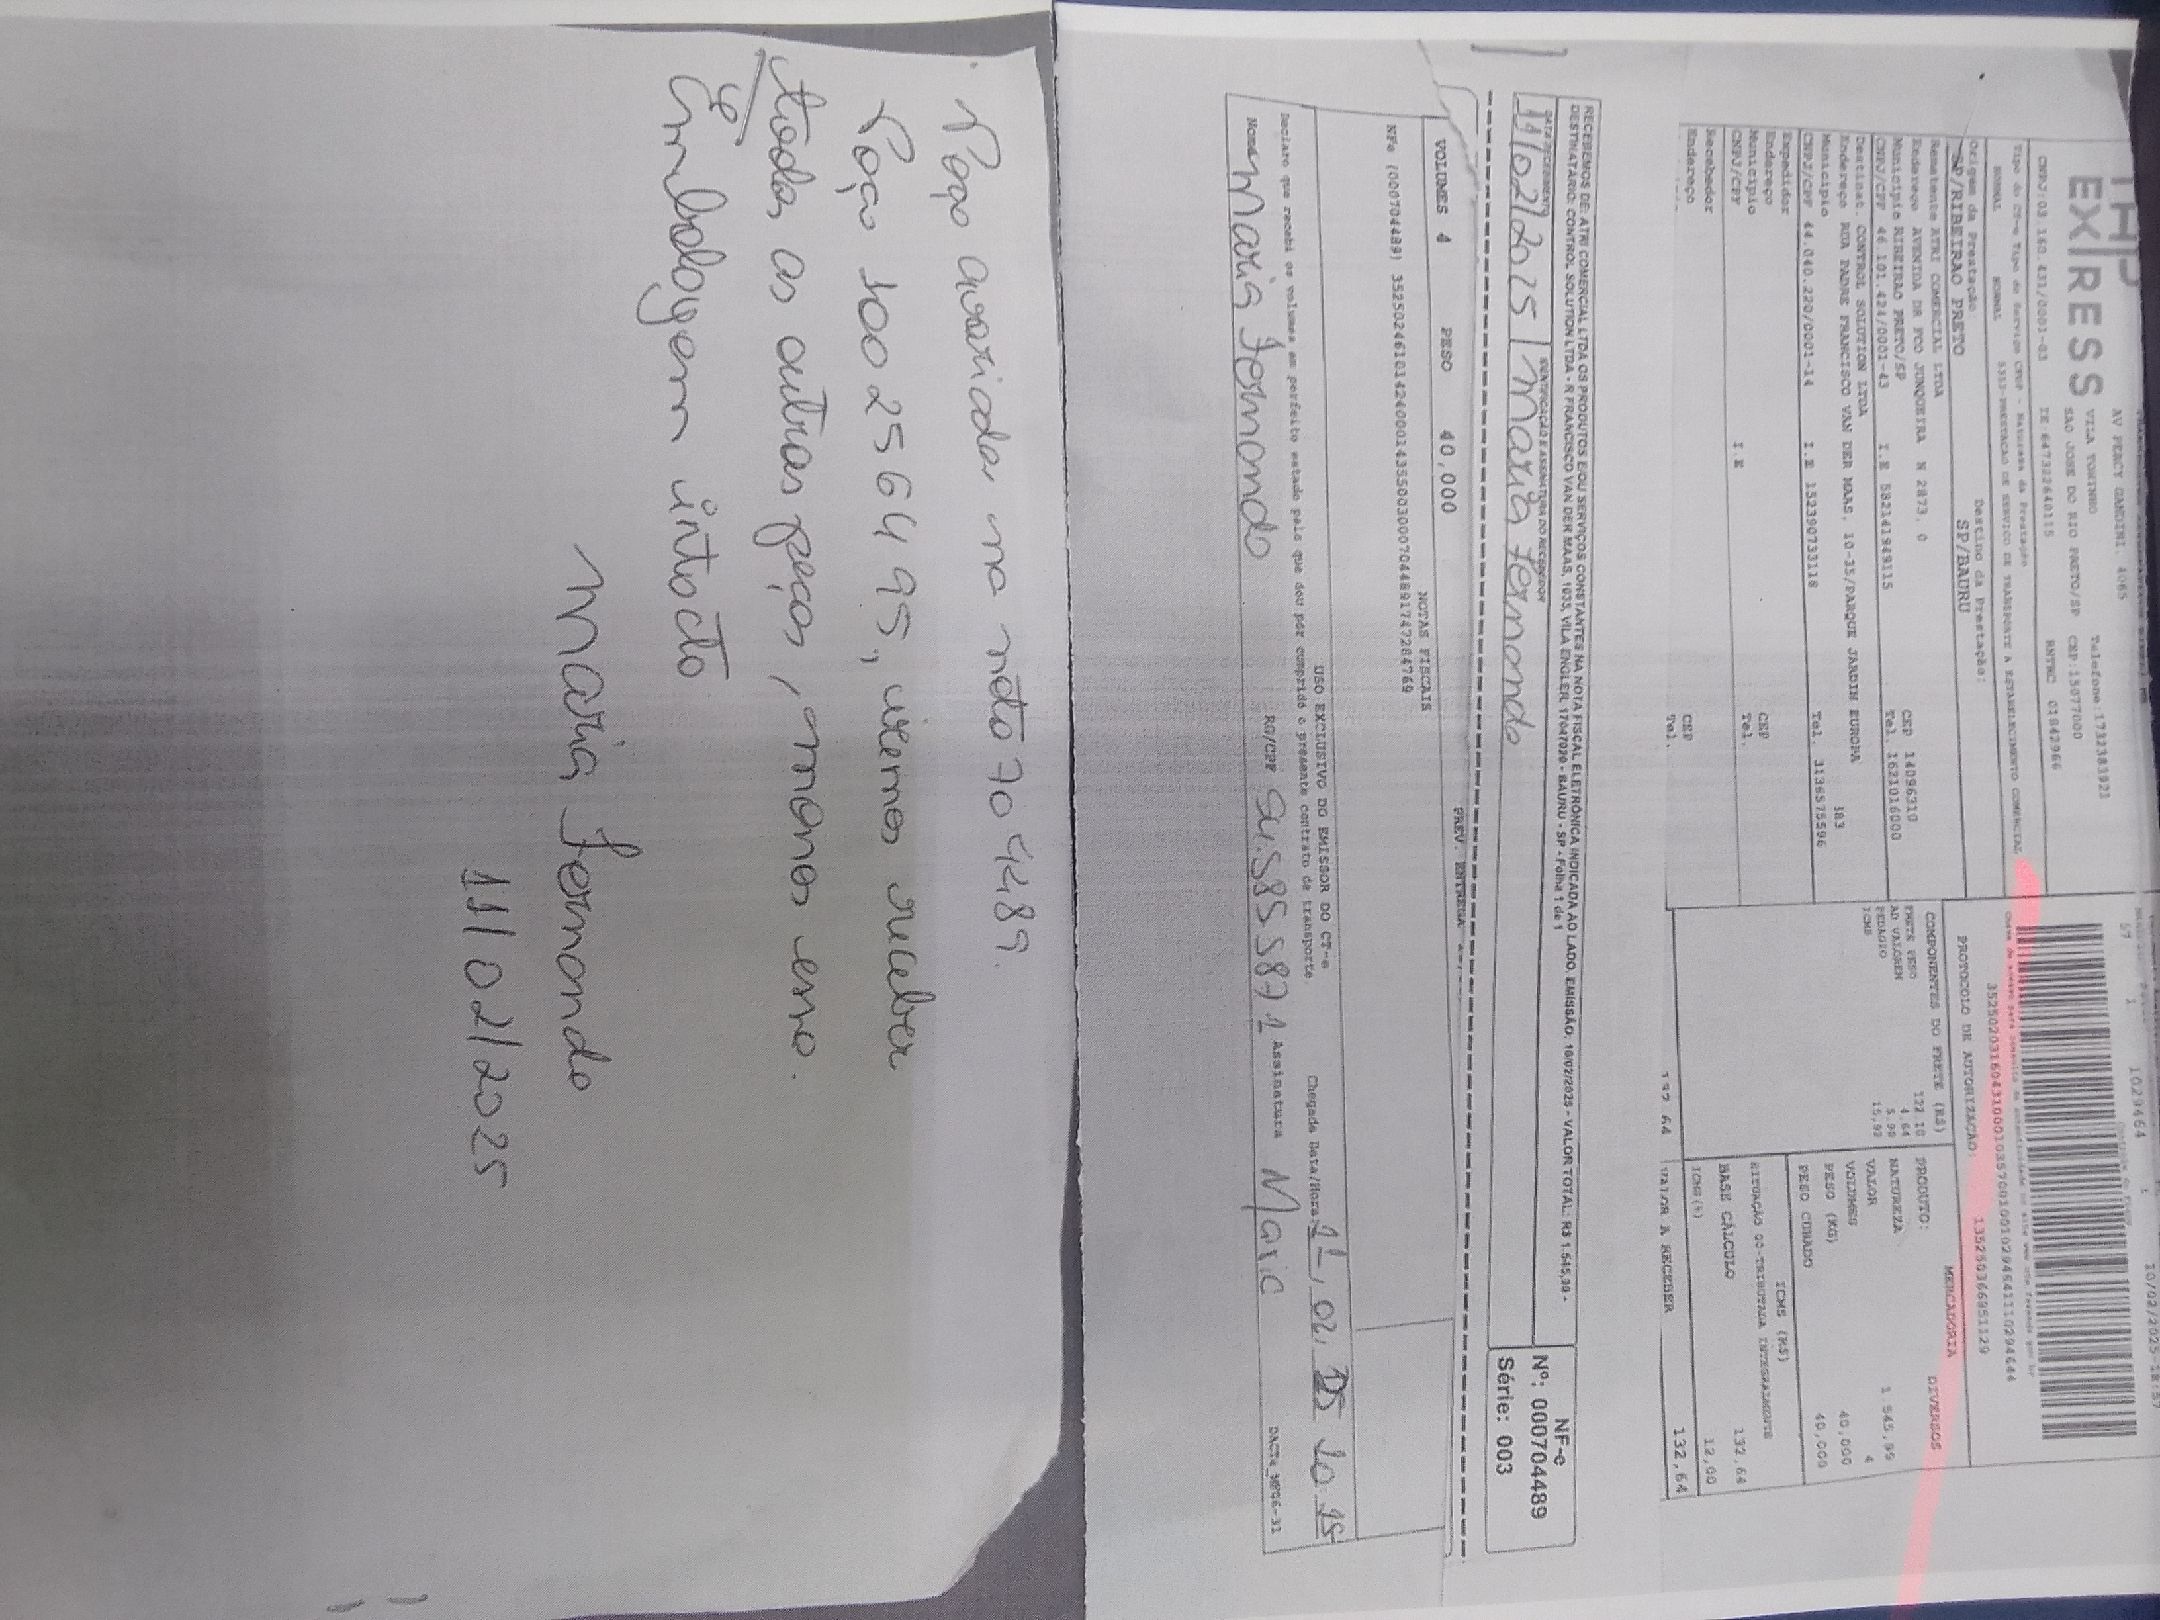 EXPRESS
AV PERCY GANDINI, 4065
VILA TONINHO Telefone:1732383923
SAO JOSE DO RIO PRETO/SP CEP:15077000
CNPJ:03.160.431/0001-03 IE:647322640115 RNTRC 01842966
NORMAL NORMAL
Origem da Prestação Destino da Prestação:
SP/RIBEIRAO PRETO SP/BAURU
Remetente ATRI COMERCIAL LTDA
Endereço AVENIDA DR FCO JUNQUEIRA N 2873, 0
Municipio RIBEIRAO PRETO/SP CEP 14096310
CNPJ/CPF 46.101.424/0001-43 I.E 582141949115 Tel. 1621016000
Destinat. CONTROL SOLUTION LTDA
Endereço RUA PADRE FRANCISCO VAN DER MAAS, 10-35/PARQUE JARDIM EUROPA
Municipio
CNPJ/CPF 44.040.220/0001-14 I.E 152390733118 Tel. 3136575596
Expedidor
Endereço CEP
Municipio Tel.
CNPJ/CPF I.E
Recebedor
Endereço CEP
Tel.
1029464
10/02/2025
PROTOCOLO DE AUTORIZAÇÃO
COMPONENTES DO FRETE (R$)
FRETE PESO 122,10
AD VALOREM 4,64
PEDAGIO 5,90
ICMS 15,92
MERCADORIA
PRODUTO: DIVERSOS
NATUREZA
VALOR 1.545,99
VOLUMES 4
PESO (KG) 40,000
PESO CUBADO 40,000
ICMS (R$)
SITUAÇÃO 00-TRIBUTADA INTEGRALMENTE
BASE CÁLCULO 132,64
ICMS(%) 12,00
VALOR A RECEBER 132,64
RECEBEMOS DE: ATRI COMERCIAL LTDA OS PRODUTOS E/OU SERVIÇOS CONSTANTES NA NOTA FISCAL ELETRÔNICA INDICADA AO LADO. EMISSÃO: 10/02/2025 - VALOR TOTAL: R$ 1.545,99 -
DESTINATÁRIO: CONTROL SOLUTION LTDA - R FRANCISCO VAN DER MAAS, 1035, VILA ENGLER, 17047020 - BAURU - SP - Folha 1 de 1
DATA RECEBIMENTO IDENTIFICAÇÃO E ASSINATURA DO RECEBEDOR
11/02/2025 Maria Fernanda
NF-e
Nº: 000704489
Série: 003
PREV. ENTREGA
VOLUMES 4 PESO 40,000
NOTAS FISCAIS
NFe (000704489) 35250246101424000143550030007044891747284769
USO EXCLUSIVO DO EMISSOR DO CT-e
Declaro que recebi os volumes em perfeito estado pelo que dou por cumprido o presente contrato de transporte. Chegada Data/Hora
Nome Maria Fernanda RG/CPF Assinatura Maria
• Peça avariada, na nota 704489.
Peça 10025 64 95, iremos receber
todas as outras peças, menos essa.
Embalagem intacta
Maria Fernanda
11/02/2025